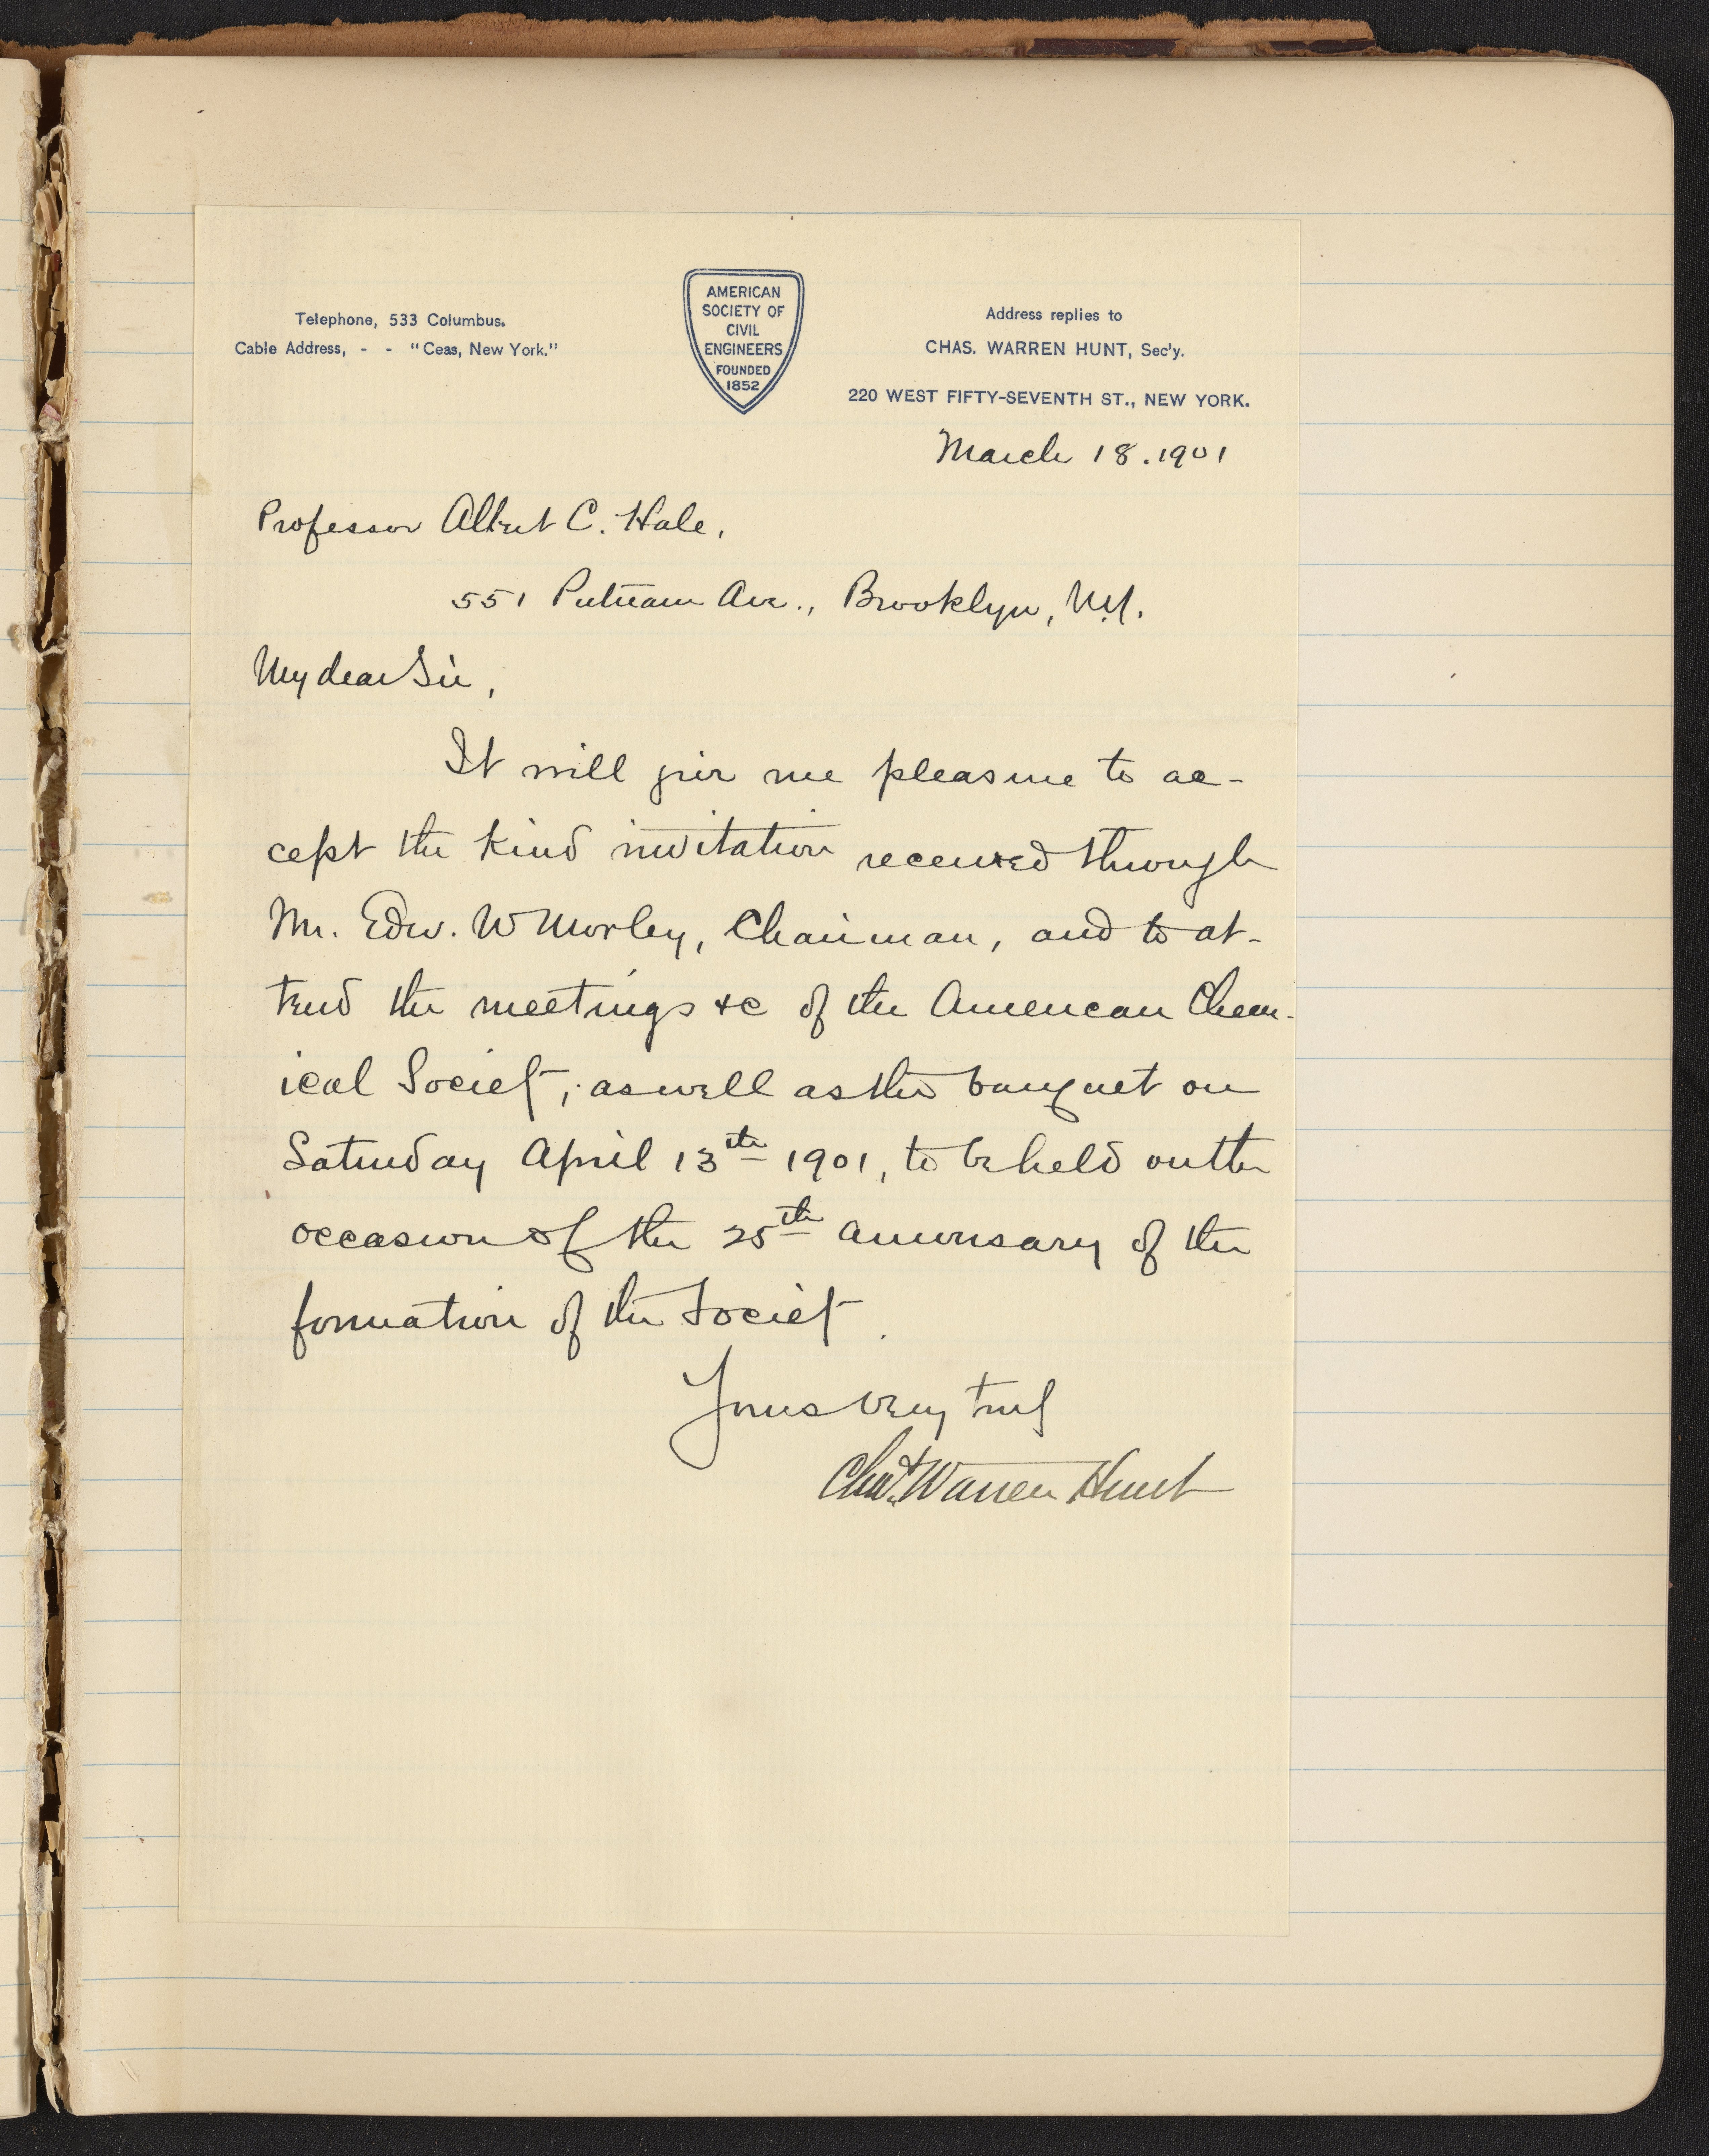 Telephone, 533 Columbus.
Cable Address, - - "Ceas, New York."
AMERICAN
SOCIETY OF
CIVIL
ENGINEERS
FOUNDED
1852
Address replies to
CHAS. WARREN HUNT, Sec'y.
220 WEST FIFTY-SEVENTH ST., NEW YORK.
March 18. 1901
Professor Albert C. Hale,
551 Putnam Ave., Brooklyn, N.Y.
My dear Sir,
It will give me pleasure to ac-
cept the kind invitation received through
Mr. Edw. W Morley, Chairman, and to at-
tend the meetings &c of the American Chem-
ical Society, as well as the banquet on
Saturday April 13th 1901, to be held on the
occasion of the 25th aniversary of the
formation of the Society.
Yours very truly
Chas. Warren Hunt